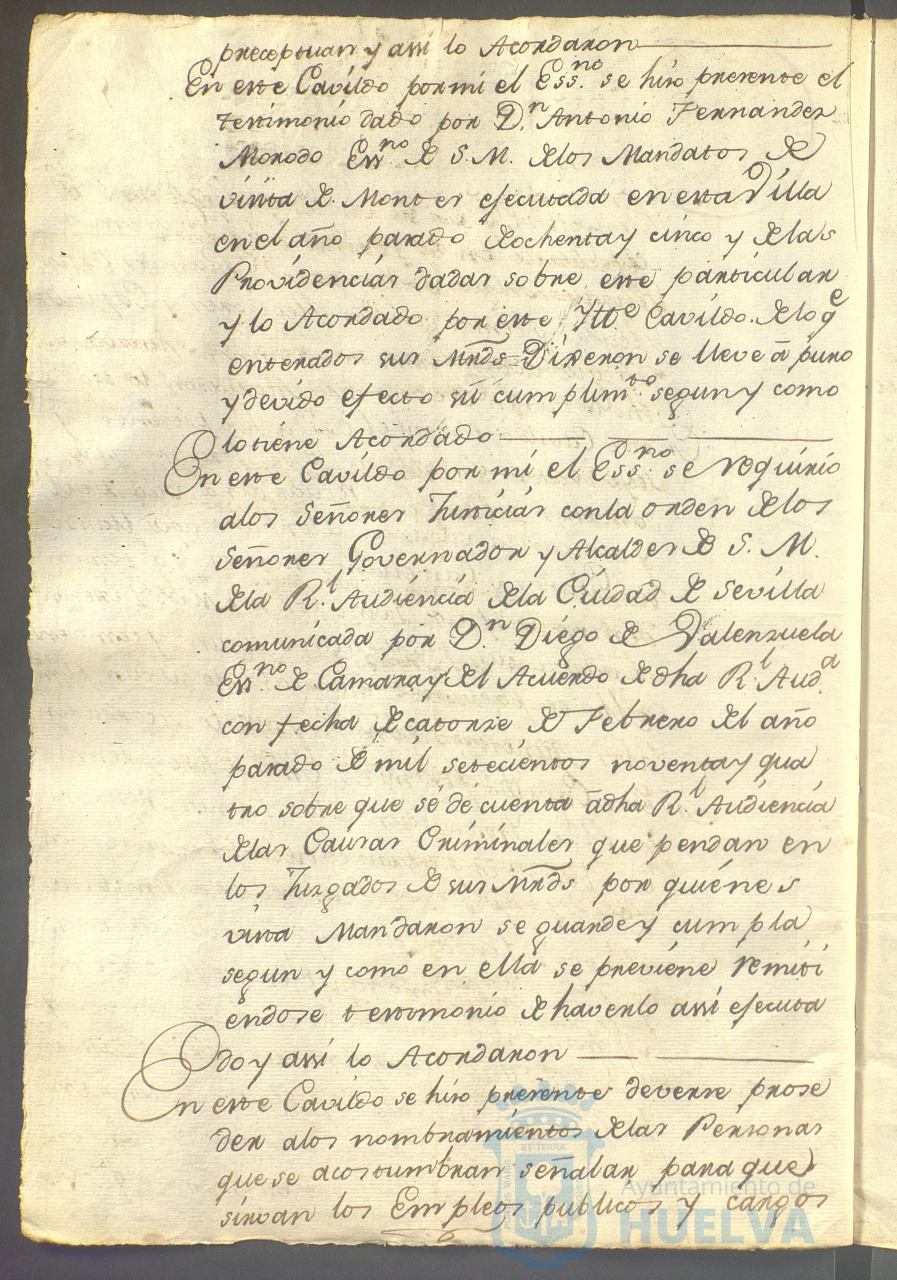 preceptuan y assi lo Acordaron
En este Cavildo por mi el Ess.no se hizo presente el
testimonio dado por D.n Antonio Fernandez
Morodo Ess.no de S. M. de los Mandatos de
visita de Montes ejecutada en esta Villa
en el año pasado de ochenta y cinco y de las
Providencias dadas sobre este particular
y lo Acordado por este Ytt.e Cavildo de lo q.e
enterados sus Mrds Dixeron se lleve a puro
y devido efecto su cumplim.to segun y como
lo tiene Acordado
En este Cavildo por mi el Ess.no se requirio
a los Señores Justicias con la orden de los
Señores Governador y Alcaldes de S. M.
de la R.l Audiencia de la Ciudad de Sevilla
comunicada por D.n Diego de Valenzuela
Ess.no de Camara y del Acuerdo de dha R.l Aud.a
con fecha de catorze de Febrero del año
pasado de mil setecientos noventa y qua
tro sobre que se dé cuenta a dha R.l Audiencia
de las Causas Criminales que pendan en
los Juzgados de sus Mrds por quienes
vista Mandaron se guarde y cumpla
segun y como en ella se previene remiti
endose testimonio de haverlo assi ejecuta
do y assi lo Acordaron
En este Cavildo se hizo presente deverse prose
der a los nombramientos de las Personas
que se acostumbran señalar para que
sirvan los Empleos publicos y cargos
Ayuntamiento de
HUELVA